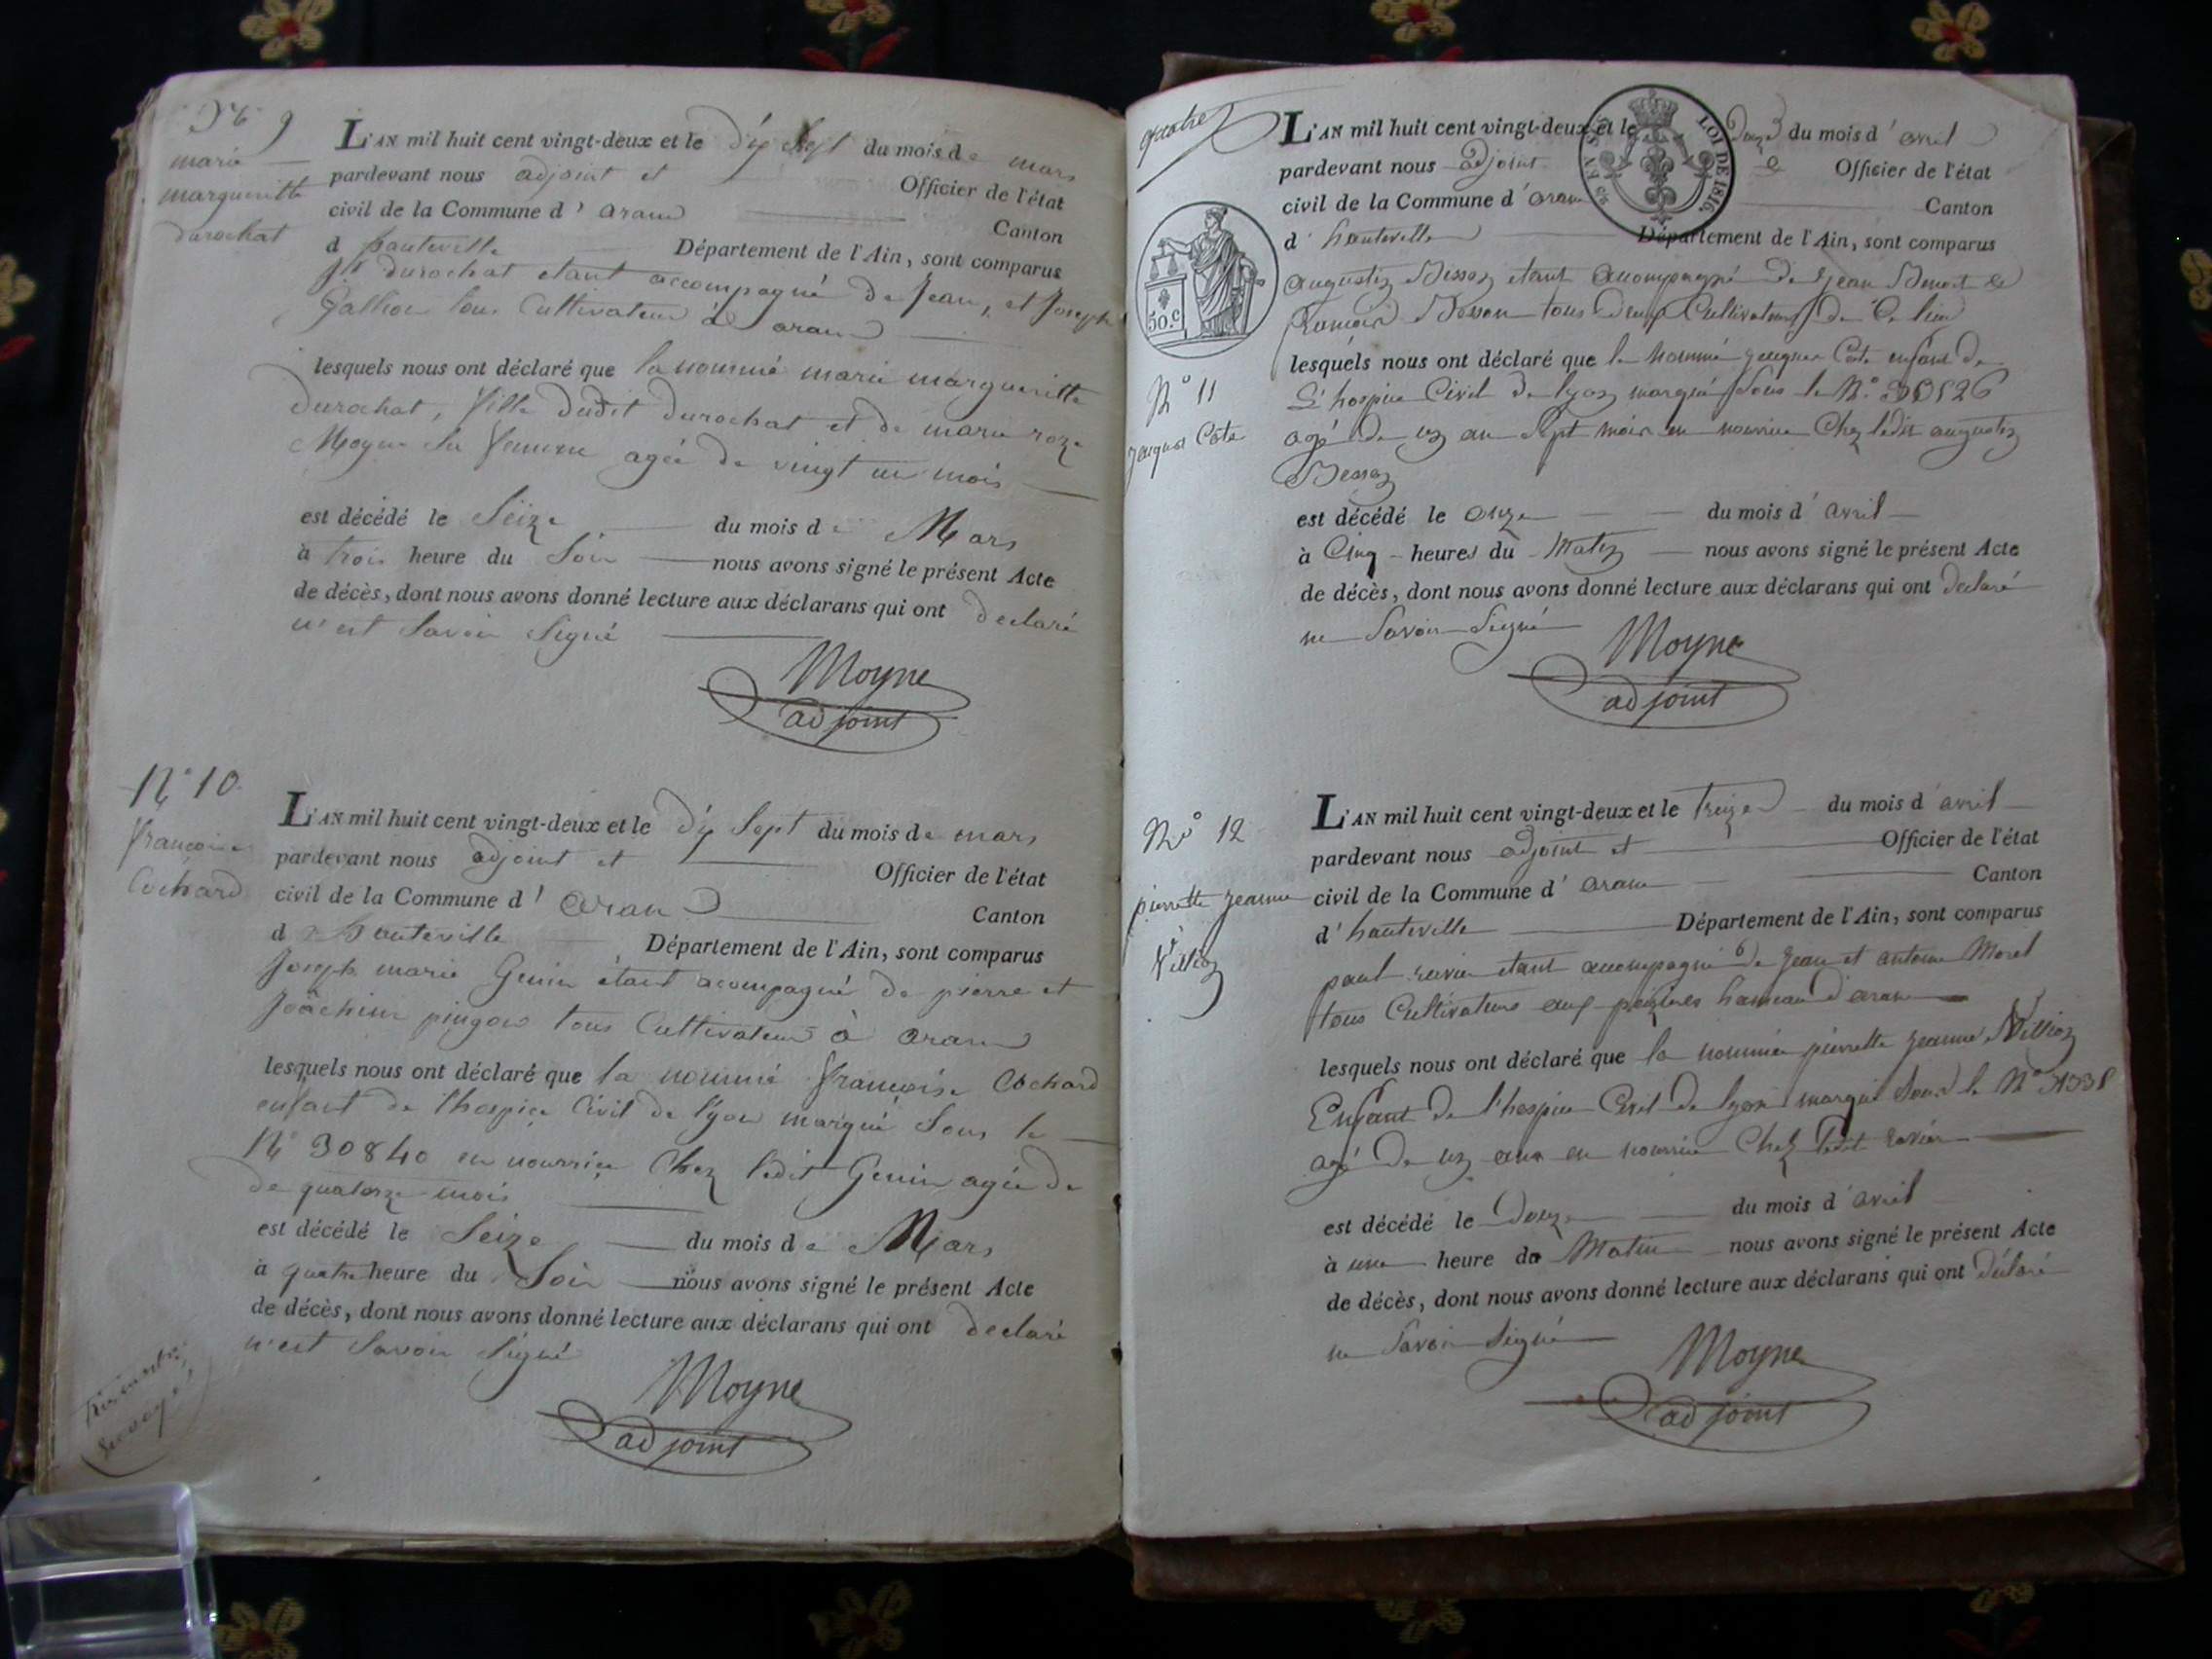 N° 9
marie
margueritte
durochat
L'AN mil huit cent vingt-deux et le dix Sept du mois de mars
pardevant nous adjoint et Officier de l'état
civil de la Commune d' aran
Canton
d hauteville Département de l'Ain, sont comparus
durochat etant accompagné de jean, et Joseph
tous Cultivateur à aran
lesquels nous ont déclaré que la nommé marie margueritte
durochat, fille dudit durochat et de marie roze
Moyne sa femme agée de vingt un mois
est décédé le Seize du mois de Mars
à trois heure du Soir nous avons signé le présent Acte
de décès, dont nous avons donné lecture aux déclarans qui ont declaré
n'est Savoir Signé
Moyne
adjoint
N° 10
françoise
Cochard
L'AN mil huit cent vingt-deux et le dix Sept du mois de mars
pardevant nous adjoint et Officier de l'état
civil de la Commune d' aran
Canton
d hauteville Département de l'Ain, sont comparus
Joseph marie Genin étant acompagné de pierre et
Joachim pingon tous Cultivateur à aran
lesquels nous ont déclaré que la nommé françoise Cochard
enfant de l'hospice Civil de lyon marqué Sous le
N° 30840 en nourrice Chez ledit Genin agée de
de quatorze mois
est décédé le Seize du mois de Mars
à quatre heure du Soir nous avons signé le présent Acte
de décès, dont nous avons donné lecture aux déclarans qui ont declaré
n'est Savoir Signé
Moyne
adjoint
quatre
50.c
LOI DE 1816.
L'AN mil huit cent vingt-deux et le douze du mois d' avril
pardevant nous adjoint Officier de l'état
civil de la Commune d' aran Canton
d' hauteville Département de l'Ain, sont comparus
augustin Besson etant accompagné de jean Benoit
Romain Besson tous deux Cultivateurs de Ce lieu
N° 11
jacques Côte
lesquels nous ont déclaré que le nommé jacques Côte enfant de
L'hospice Civil de lyon marqué Sous le N°
agé de un an Sept mois en nourrice Chez ledit augustin
Besson
est décédé le onze du mois d' avril
à Cinq heures du Matin nous avons signé le présent Acte
de décès, dont nous avons donné lecture aux déclarans qui ont declaré
ne Savoir Signé
Moyne
adjoint
N° 12
pierrette jeanne
L'AN mil huit cent vingt-deux et le Treize du mois d' avril
pardevant nous adjoint et Officier de l'état
civil de la Commune d' aran Canton
d' hauteville Département de l'Ain, sont comparus
paul etant accompagné de jean et antoine Morel
tous Cultivateurs aux hameau d'aran
lesquels nous ont déclaré que la nommée pierrette jeanne
Enfant de l'hospice Civil de lyon marqué Sous le N°
agé de un ans en nourrice Chez ledit
est décédé le Douze du mois d' avril
à une heure du Matin nous avons signé le présent Acte
de décès, dont nous avons donné lecture aux déclarans qui ont déclaré
ne Savoir Signé
Moyne
adjoint